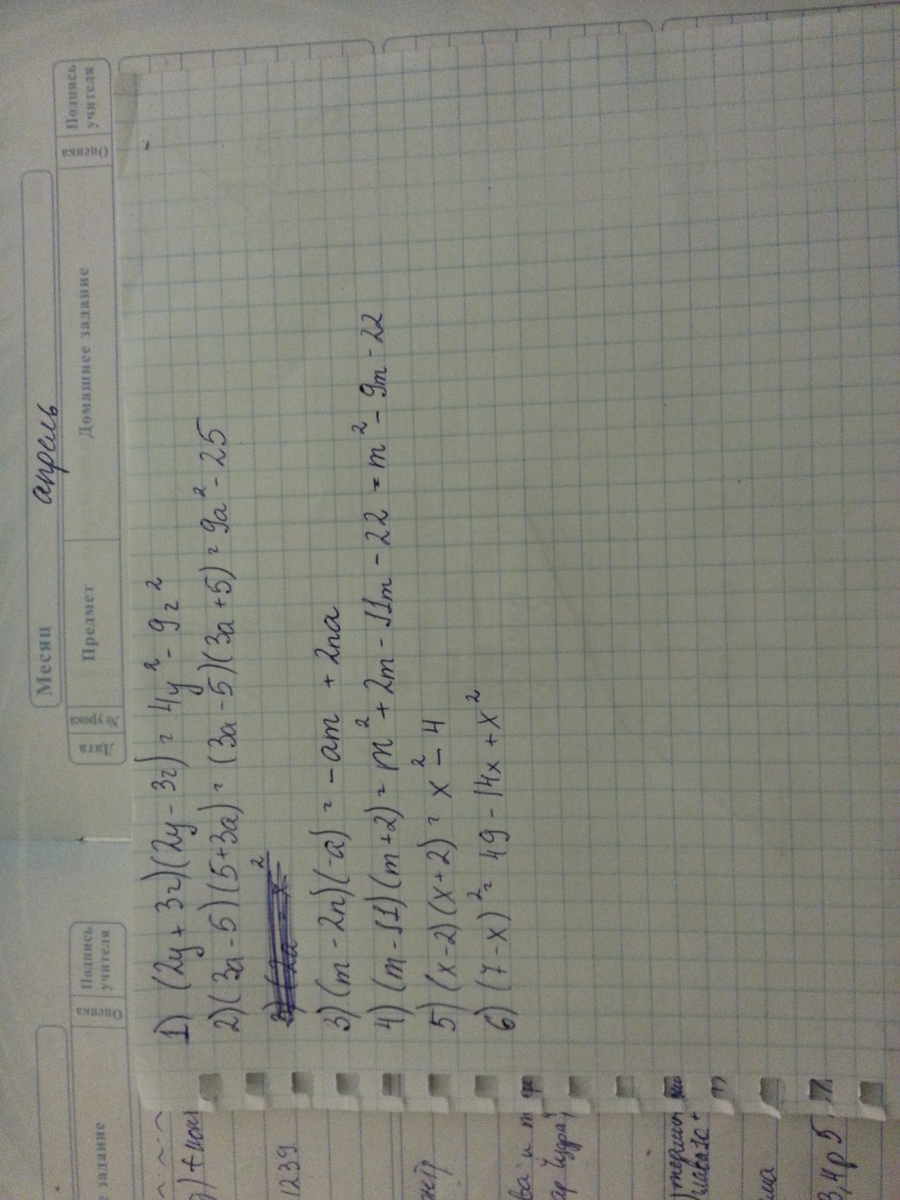 Месяц апрель
Дата № урока Предмет Домашнее задание Оценка Подпись учителя
Оценка Подпись учителя
е задание
1) (2y + 3z)(2y - 3z) = 4y² - 9z²
2) (3a - 5)(5 + 3a) = (3a - 5)(3a + 5) = 9a² - 25
3) (m - 2n)(-a) = - am + 2na
4) (m - 11)(m + 2) = m² + 2m - 11m - 22 = m² - 9m - 22
5) (x - 2)(x + 2) = x² - 4
6) (7 - x)² = 49 - 14x + x²
1239